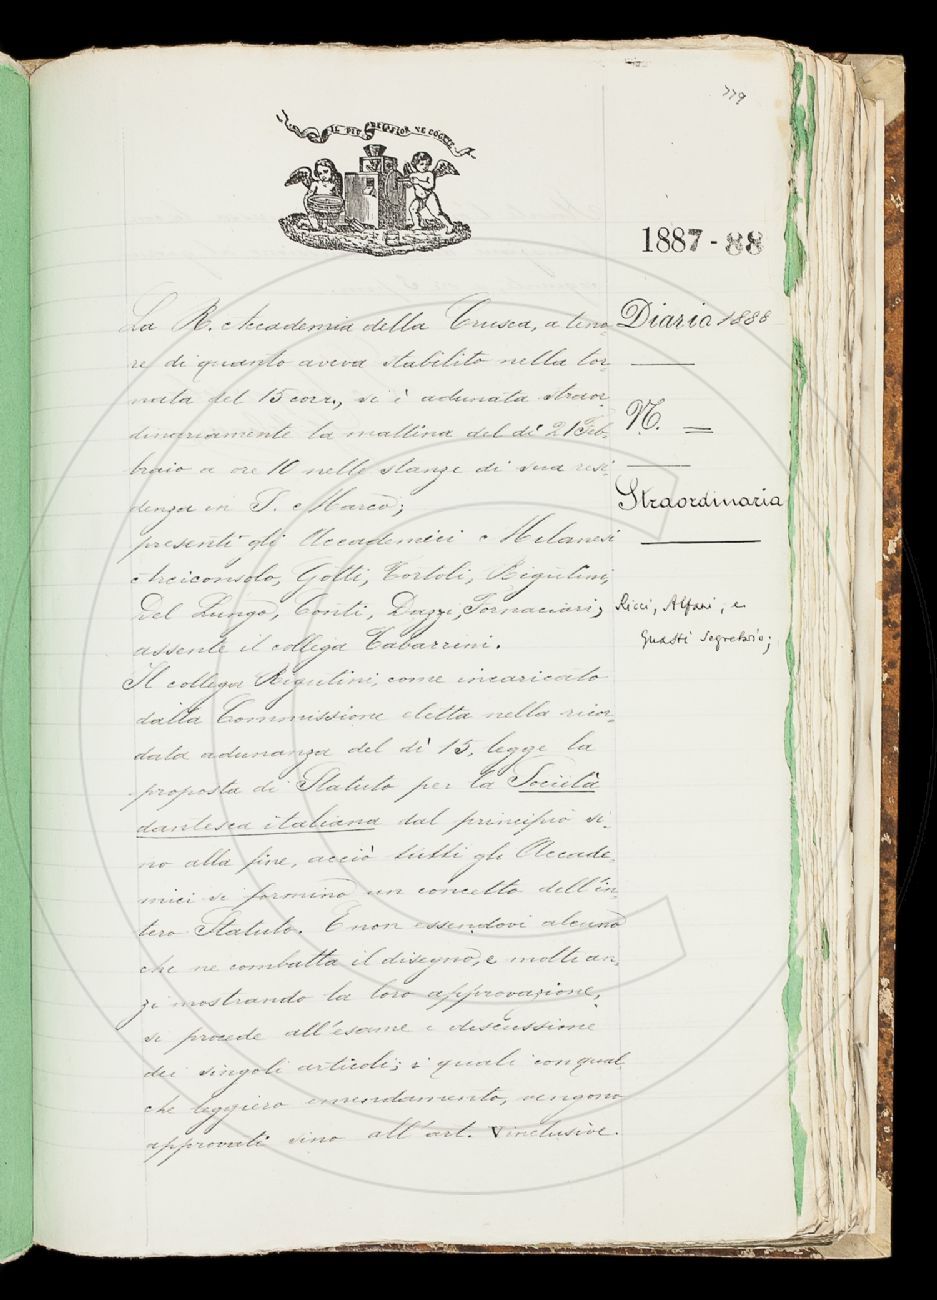 779
IL PIÙ BEL FIOR NE COGLIE
1887-88
Diario 1888
N. =
Straordinaria
La R. Accademia della Crusca, a teno-
re di quanto aveva stabilito nella tor-
nata del 15 corr., si è adunata straor-
dinariamente la mattina del dì 21 Feb-
braio a ore 10 nelle stanze di sua resi-
denza in S. Marco;
presenti gli Accademici Milanesi
Arciconsolo, Gotti, Tortoli, Rigutini,
Del Lungo, Conti, Dazzi, Fornaciari; Ricci, Alfani, e
Guasti Segretario;
assente il collega Tabarrini.
Il collega Rigutini, come incaricato
dalla Commissione eletta nella ricor-
data adunanza del dì 15, legge la
proposta di Statuto per la Società
dantesca italiana dal principio si-
no alla fine, acciò tutti gli Accade-
mici si formino un concetto dell'in-
tero Statuto. E non essendovi alcuno
che ne combatta il disegno, e molti an-
zi mostrando la loro approvazione,
si procede all'esame e discussione
dei singoli articoli; i quali con qual
che leggiero emendamento, vengono
approvati sino all'art. V inclusive.